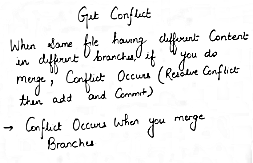 Git Conflict
When same file having different Content
in different branches, if you do
merge, Conflict Occurs (Resolve Conflict
then add and Commit)
→ Conflict Occurs when you merge
Branches